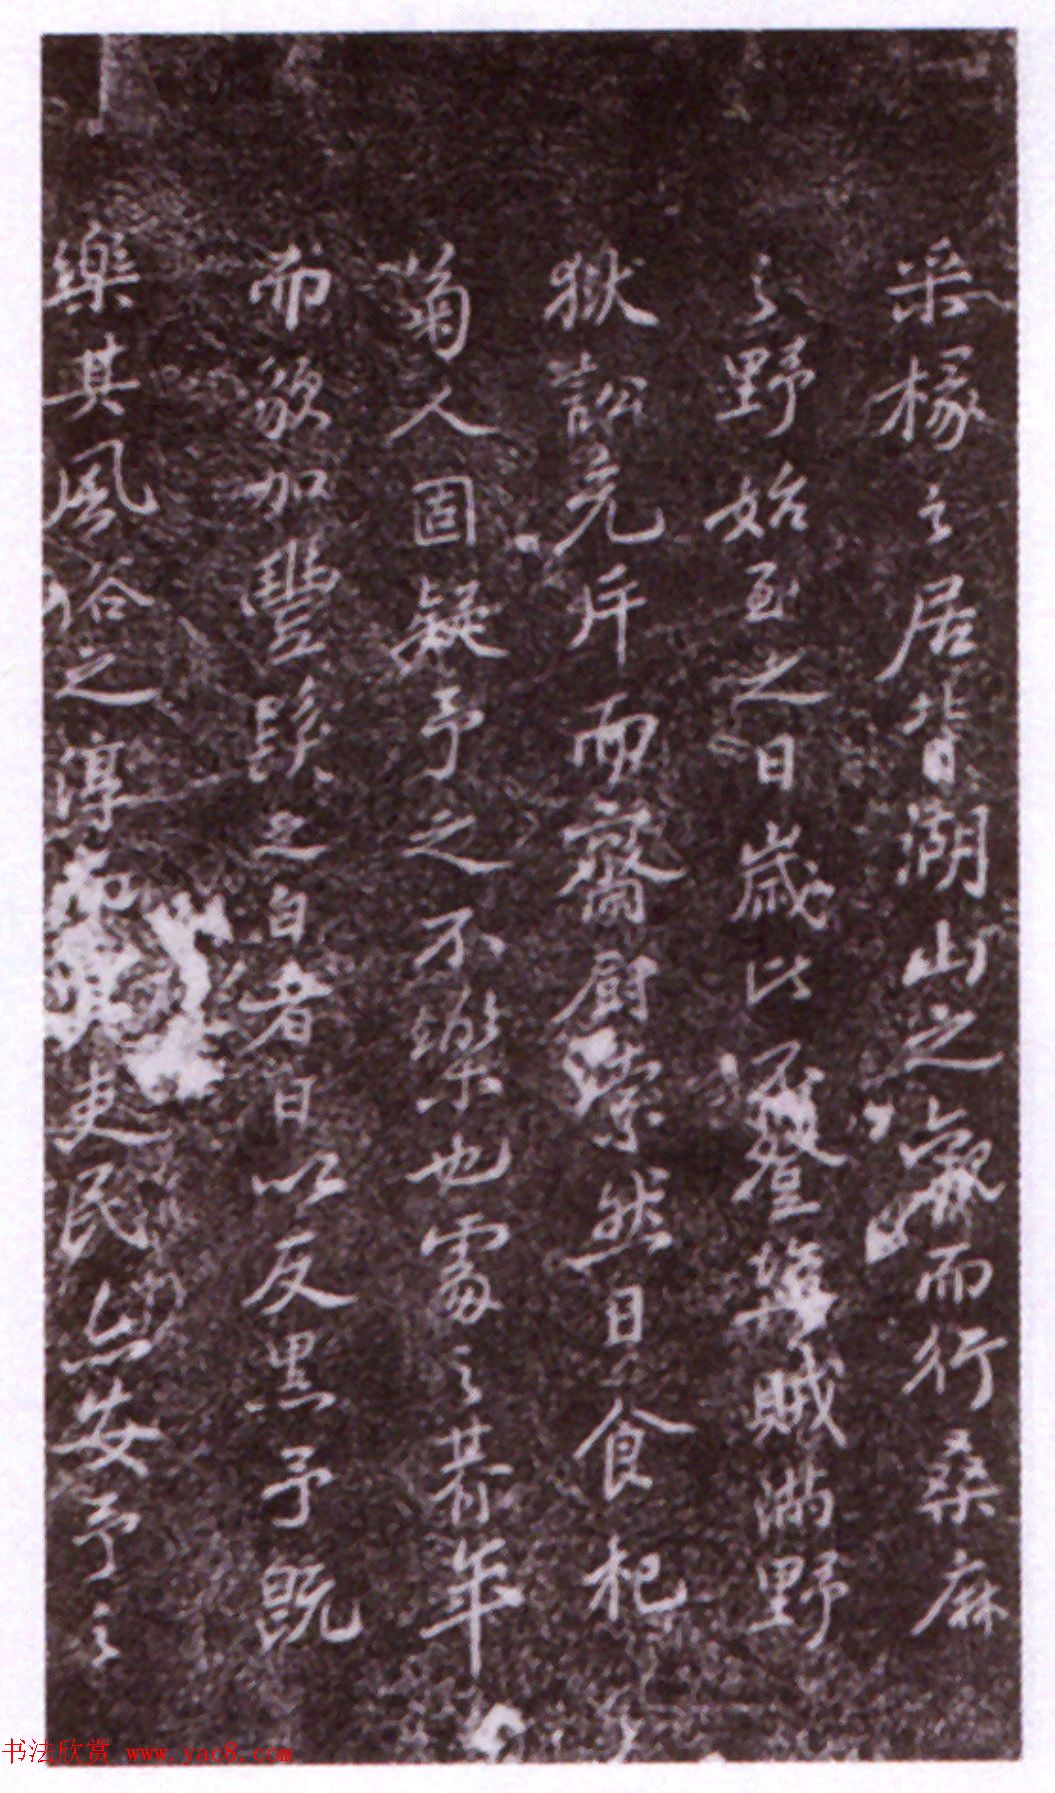 采椽之居背湖山之觀而行桑麻
之野始至之日歲比不登盜賊滿野
獄訟充斥而齋厨索然日食杞
菊人固疑予之不樂也處之朞年
而皃加豐髮之白者日以反黑予既
樂其風俗之淳而其吏民亦安予之
书法欣赏 www.yac8.com